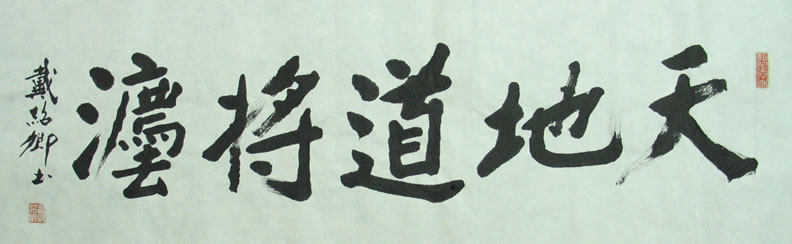 天地道将灋
戴绍卿书